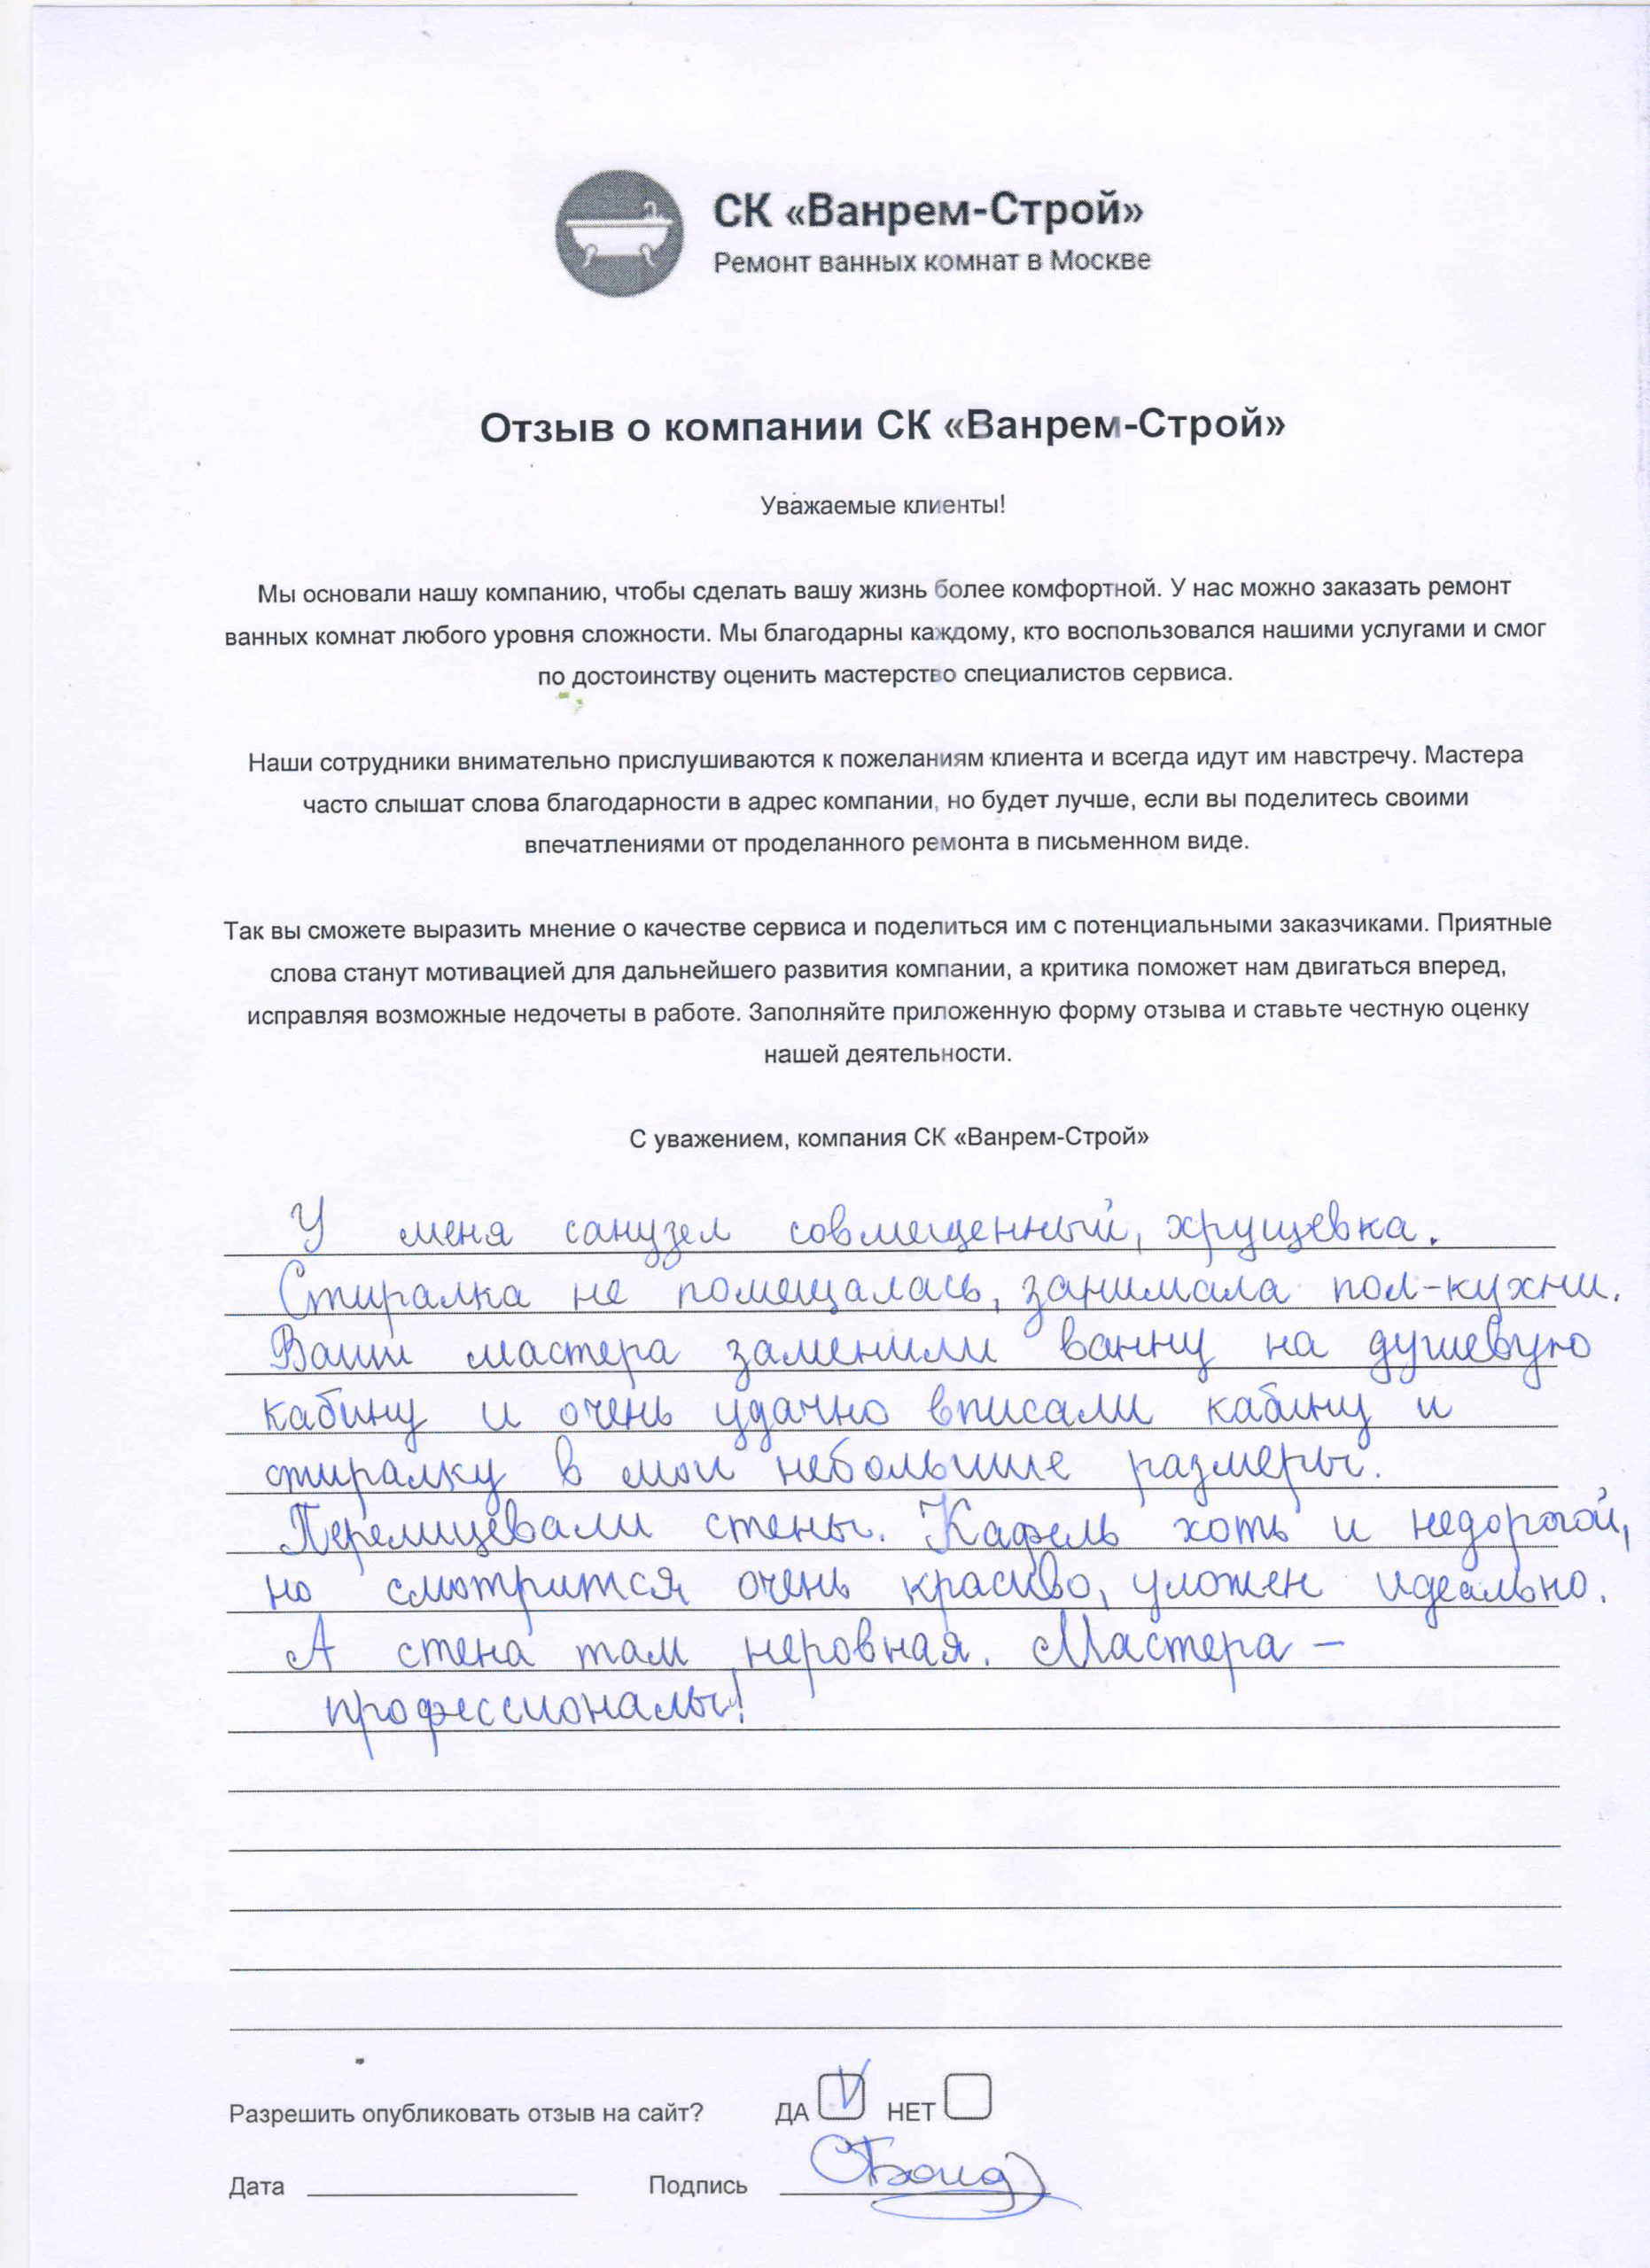 СК «Ванрем-Строй»
Ремонт ванных комнат в Москве
Отзыв о компании СК «Ванрем-Строй»
Уважаемые клиенты!
Мы основали нашу компанию, чтобы сделать вашу жизнь более комфортной. У нас можно заказать ремонт
ванных комнат любого уровня сложности. Мы благодарны каждому, кто воспользовался нашими услугами и смог
по достоинству оценить мастерство специалистов сервиса.
Наши сотрудники внимательно прислушиваются к пожеланиям клиента и всегда идут им навстречу. Мастера
часто слышат слова благодарности в адрес компании, но будет лучше, если вы поделитесь своими
впечатлениями от проделанного ремонта в письменном виде.
Так вы сможете выразить мнение о качестве сервиса и поделиться им с потенциальными заказчиками. Приятные
слова станут мотивацией для дальнейшего развития компании, а критика поможет нам двигаться вперед,
исправляя возможные недочеты в работе. Заполняйте приложенную форму отзыва и ставьте честную оценку
нашей деятельности.
С уважением, компания СК «Ванрем-Строй»
У меня санузел совмещенный, хрущевка.
Стиралка не помещалась, занимала пол-кухни.
Ваши мастера заменили ванну на душевую
кабину и очень удачно вписали кабину и
стиралку в мои небольшие размеры.
Перелицевали стены. Кафель хоть и недорогой,
но смотрится очень красиво, уложен идеально.
А стена там неровная. Мастера –
профессионалы!
Разрешить опубликовать отзыв на сайт? ДА V НЕТ
Дата Подпись